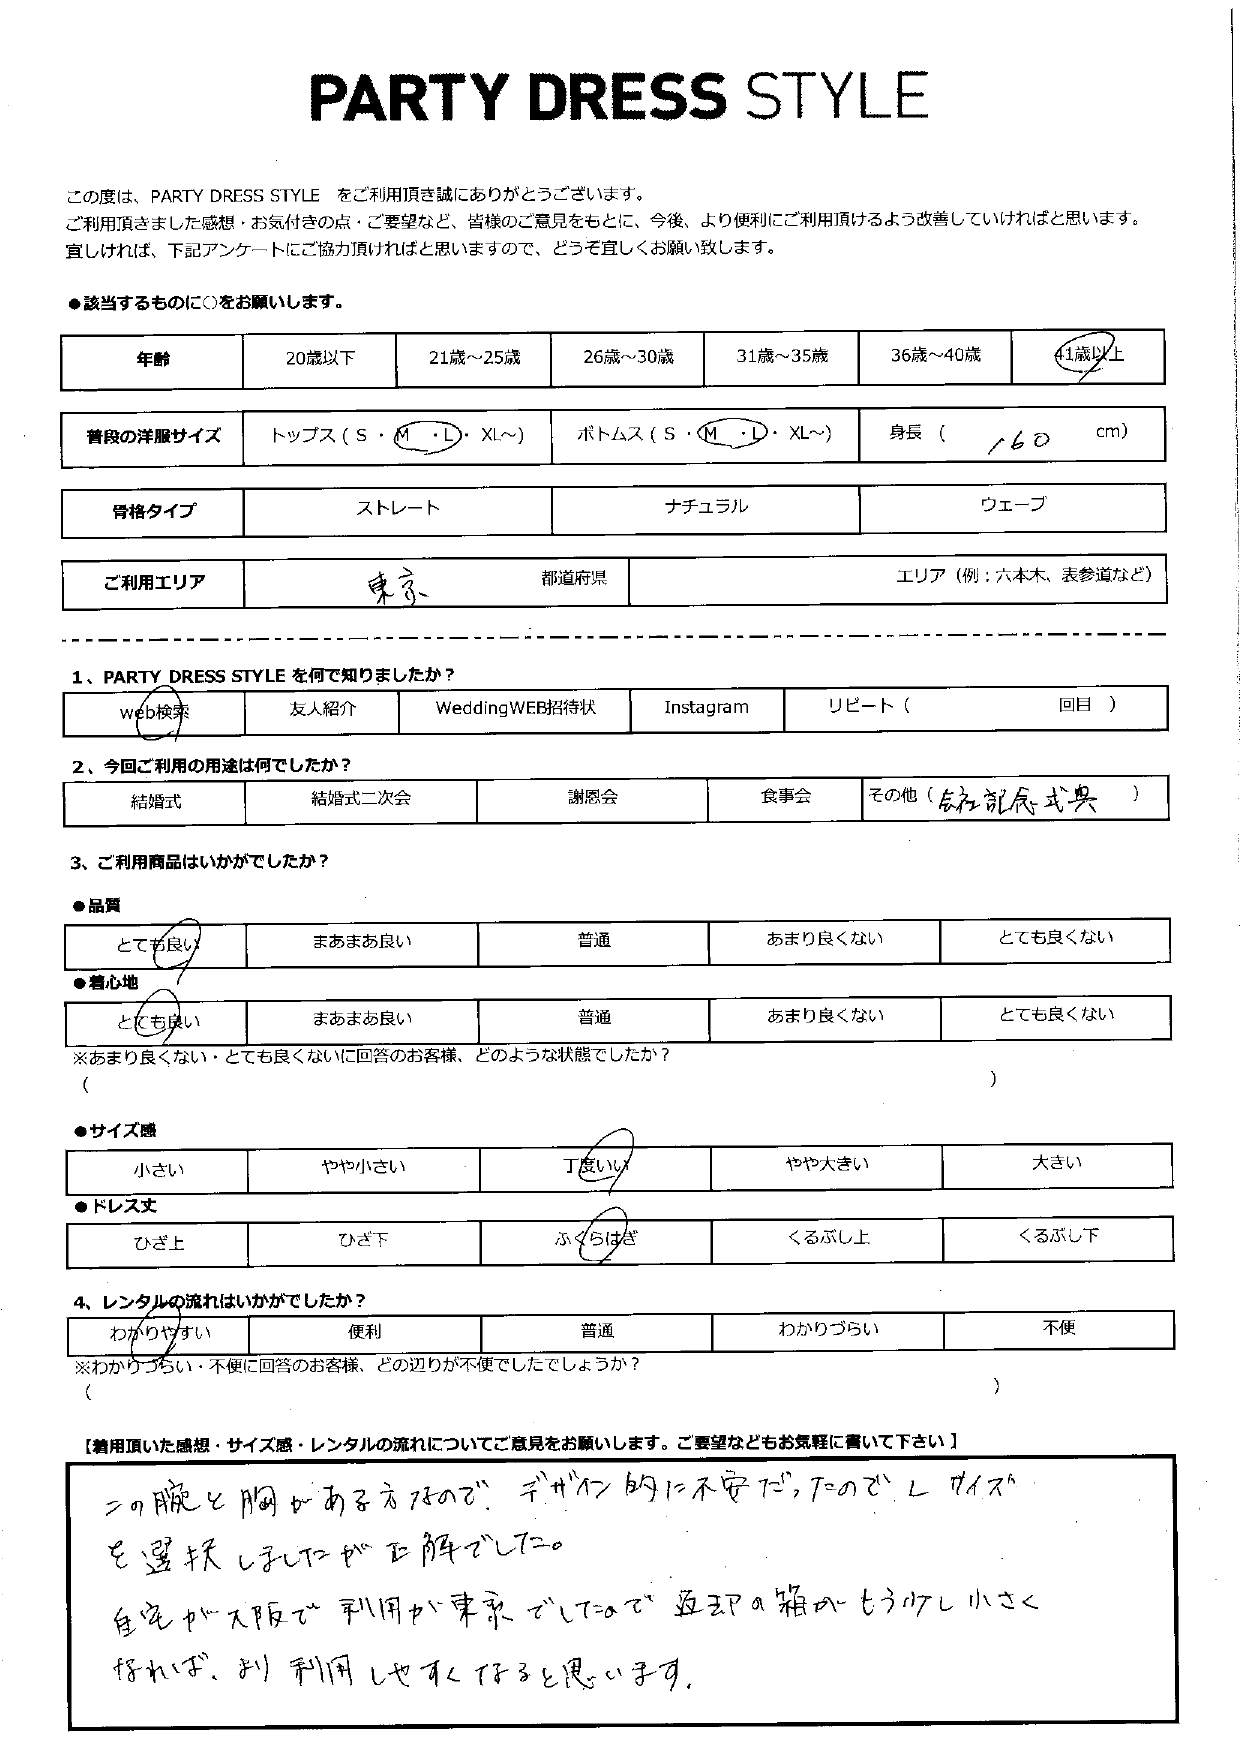 PARTY DRESS STYLE
この度は、PARTY DRESS STYLE をご利用頂き誠にありがとうございます。
ご利用頂きました感想・お気付きの点・ご要望など、皆様のご意見をもとに、今後、より便利にご利用頂けるよう改善していければと思います。
宜しければ、下記アンケートにご協力頂ければと思いますので、どうぞ宜しくお願い致します。
●該当するものに○をお願いします。
年齢 20歳以下 21歳～25歳 26歳～30歳 31歳～35歳 36歳～40歳 41歳以上
普段の洋服サイズ トップス（ S ・ M ・ L ・ XL～） ボトムス（ S ・ M ・ L ・ XL～） 身長（ 160 cm）
骨格タイプ ストレート ナチュラル ウェーブ
ご利用エリア 東京 都道府県 エリア（例：六本木、表参道など）
1、PARTY DRESS STYLE を何で知りましたか？
web検索 友人紹介 WeddingWEB招待状 Instagram リピート（ 回目 ）
2、今回ご利用の用途は何でしたか？
結婚式 結婚式二次会 謝恩会 食事会 その他（ 会社記念式典 ）
3、ご利用商品はいかがでしたか？
●品質
とても良い まあまあ良い 普通 あまり良くない とても良くない
●着心地
とても良い まあまあ良い 普通 あまり良くない とても良くない
※あまり良くない・とても良くないに回答のお客様、どのような状態でしたか？
（ ）
●サイズ感
小さい やや小さい 丁度いい やや大きい 大きい
●ドレス丈
ひざ上 ひざ下 ふくらはぎ くるぶし上 くるぶし下
4、レンタルの流れはいかがでしたか？
わかりやすい 便利 普通 わかりづらい 不便
※わかりづらい・不便に回答のお客様、どの辺りが不便でしたでしょうか？
（ ）
【着用頂いた感想・サイズ感・レンタルの流れについてご意見をお願いします。ご要望などもお気軽に書いて下さい 】
二の腕と胸がある方なので、デザイン的に不安だったのでLサイズ
を選択しましたが正解でした。
自宅が大阪で利用が東京でしたので返却の箱がもう少し小さく
なれば、より利用しやすくなると思います。